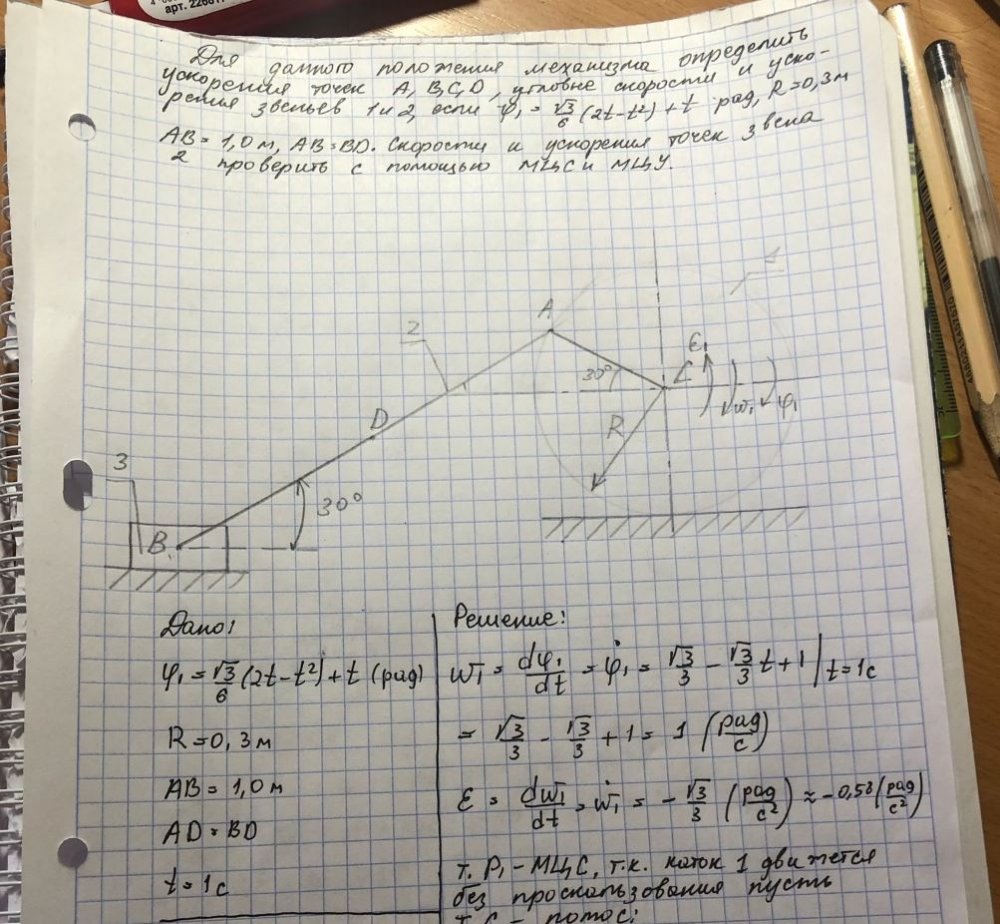 арт. 2268
Для данного положения механизма определить
ускорения точек A, B, C, D, угловые скорости и уско-
рения звеньев 1 и 2, если φ₁ = √3/6 (2t-t²) + t рад, R=0,3 м
AB = 1,0 м, AB = BD. Скорости и ускорения точек звена
2 проверить с помощью МЦС и МЦУ.
A
2
ε₁
30°
C
ω₁
φ₁
R
D
3
30°
B
Дано:
Решение:
φ₁ = √3/6 (2t-t²) + t (рад)
ω₁ = dφ₁/dt = φ̇₁ = √3/3 - √3/3 t + 1 | t = 1c
= √3/3 - √3/3 + 1 = 1 (рад/с)
R = 0,3 м
AB = 1,0 м
ε = dω₁/dt = ω̇₁ = -√3/3 (рад/с²) ≈ -0,58 (рад/с²)
AD = BD
t = 1c
т. P₁ - МЦС, т.к. каток 1 движется
без проскальзования пусть
т. C - полюс: